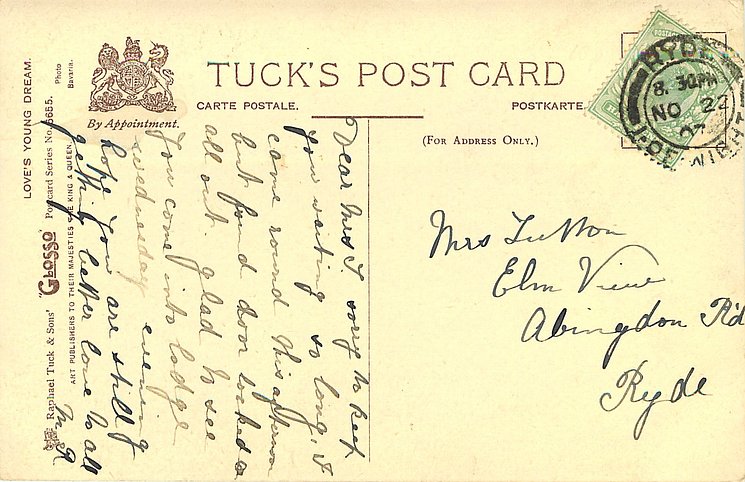 LOVE'S YOUNG DREAM.
Raphael Tuck & Sons' "GLOSSO" Postcard Series No. 5655.
Photo
Bavaria.
ART PUBLISHERS TO THEIR MAJESTIES THE KING & QUEEN.
By Appointment.
TUCK'S POST CARD
CARTE POSTALE.
POSTKARTE.
(FOR ADDRESS ONLY.)
RYDE
8. 30 PM
NO 22
07
I. OF WIGHT
Dear Mrs T sorry to keep
you waiting so long, I
came round this afternoon
but found door locked &
all out. glad to see
you come into lodge
wednesday evening
hope you are still
getting better love to all
Mrs Tutton
Elm View
Abingdon Rd
Ryde